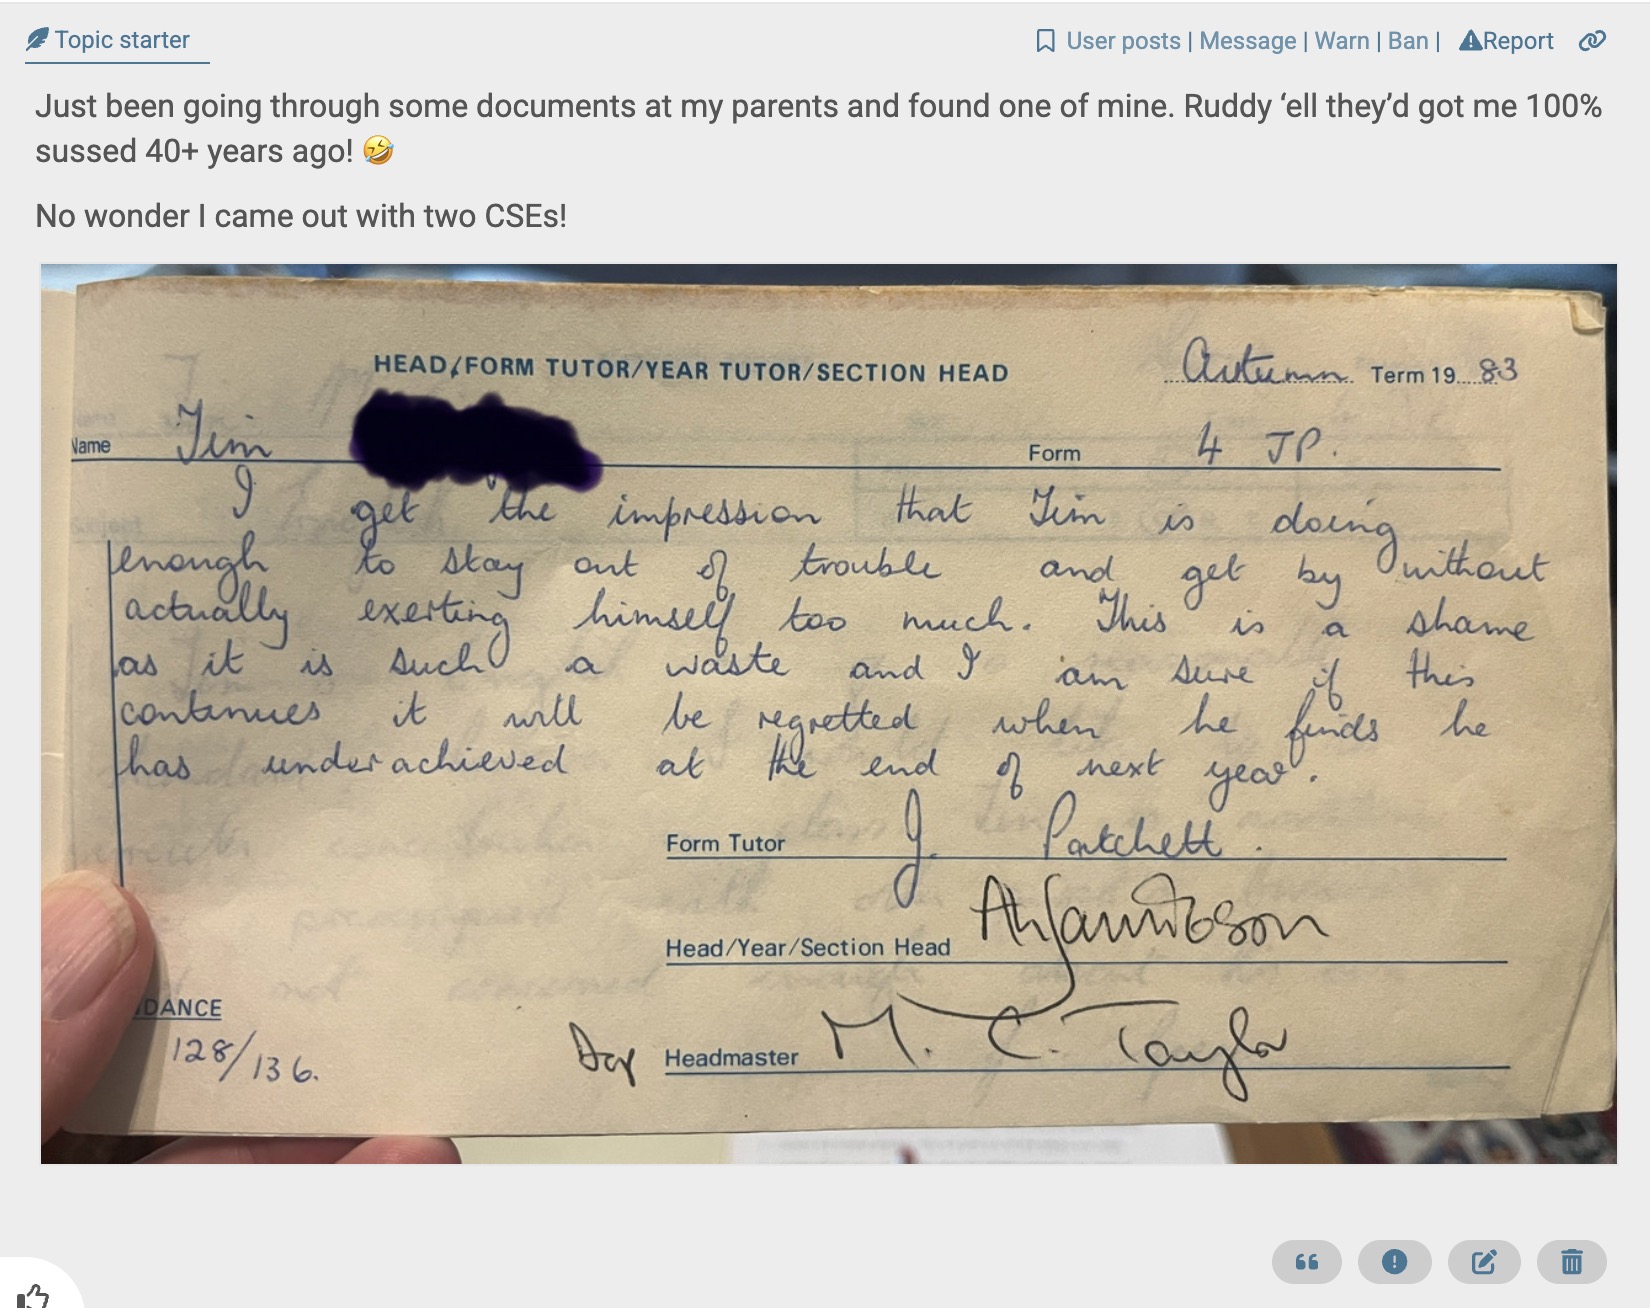 Topic starter
User posts | Message | Warn | Ban | Report
Just been going through some documents at my parents and found one of mine. Ruddy ‘ell they’d got me 100%
sussed 40+ years ago! 🤣
No wonder I came out with two CSEs!
HEAD/FORM TUTOR/YEAR TUTOR/SECTION HEAD
Autumn Term 1983
Name Tim
Form 4 JP.
I get the impression that Tim is doing
enough to stay out of trouble and get by without
actually exerting himself too much. This is a shame
as it is such a waste and I am sure if this
continues it will be regretted when he finds he
has underachieved at the end of next year.
Form Tutor J. Patchett.
Head/Year/Section Head
DANCE
128/136.
Headmaster M. C. Taylor